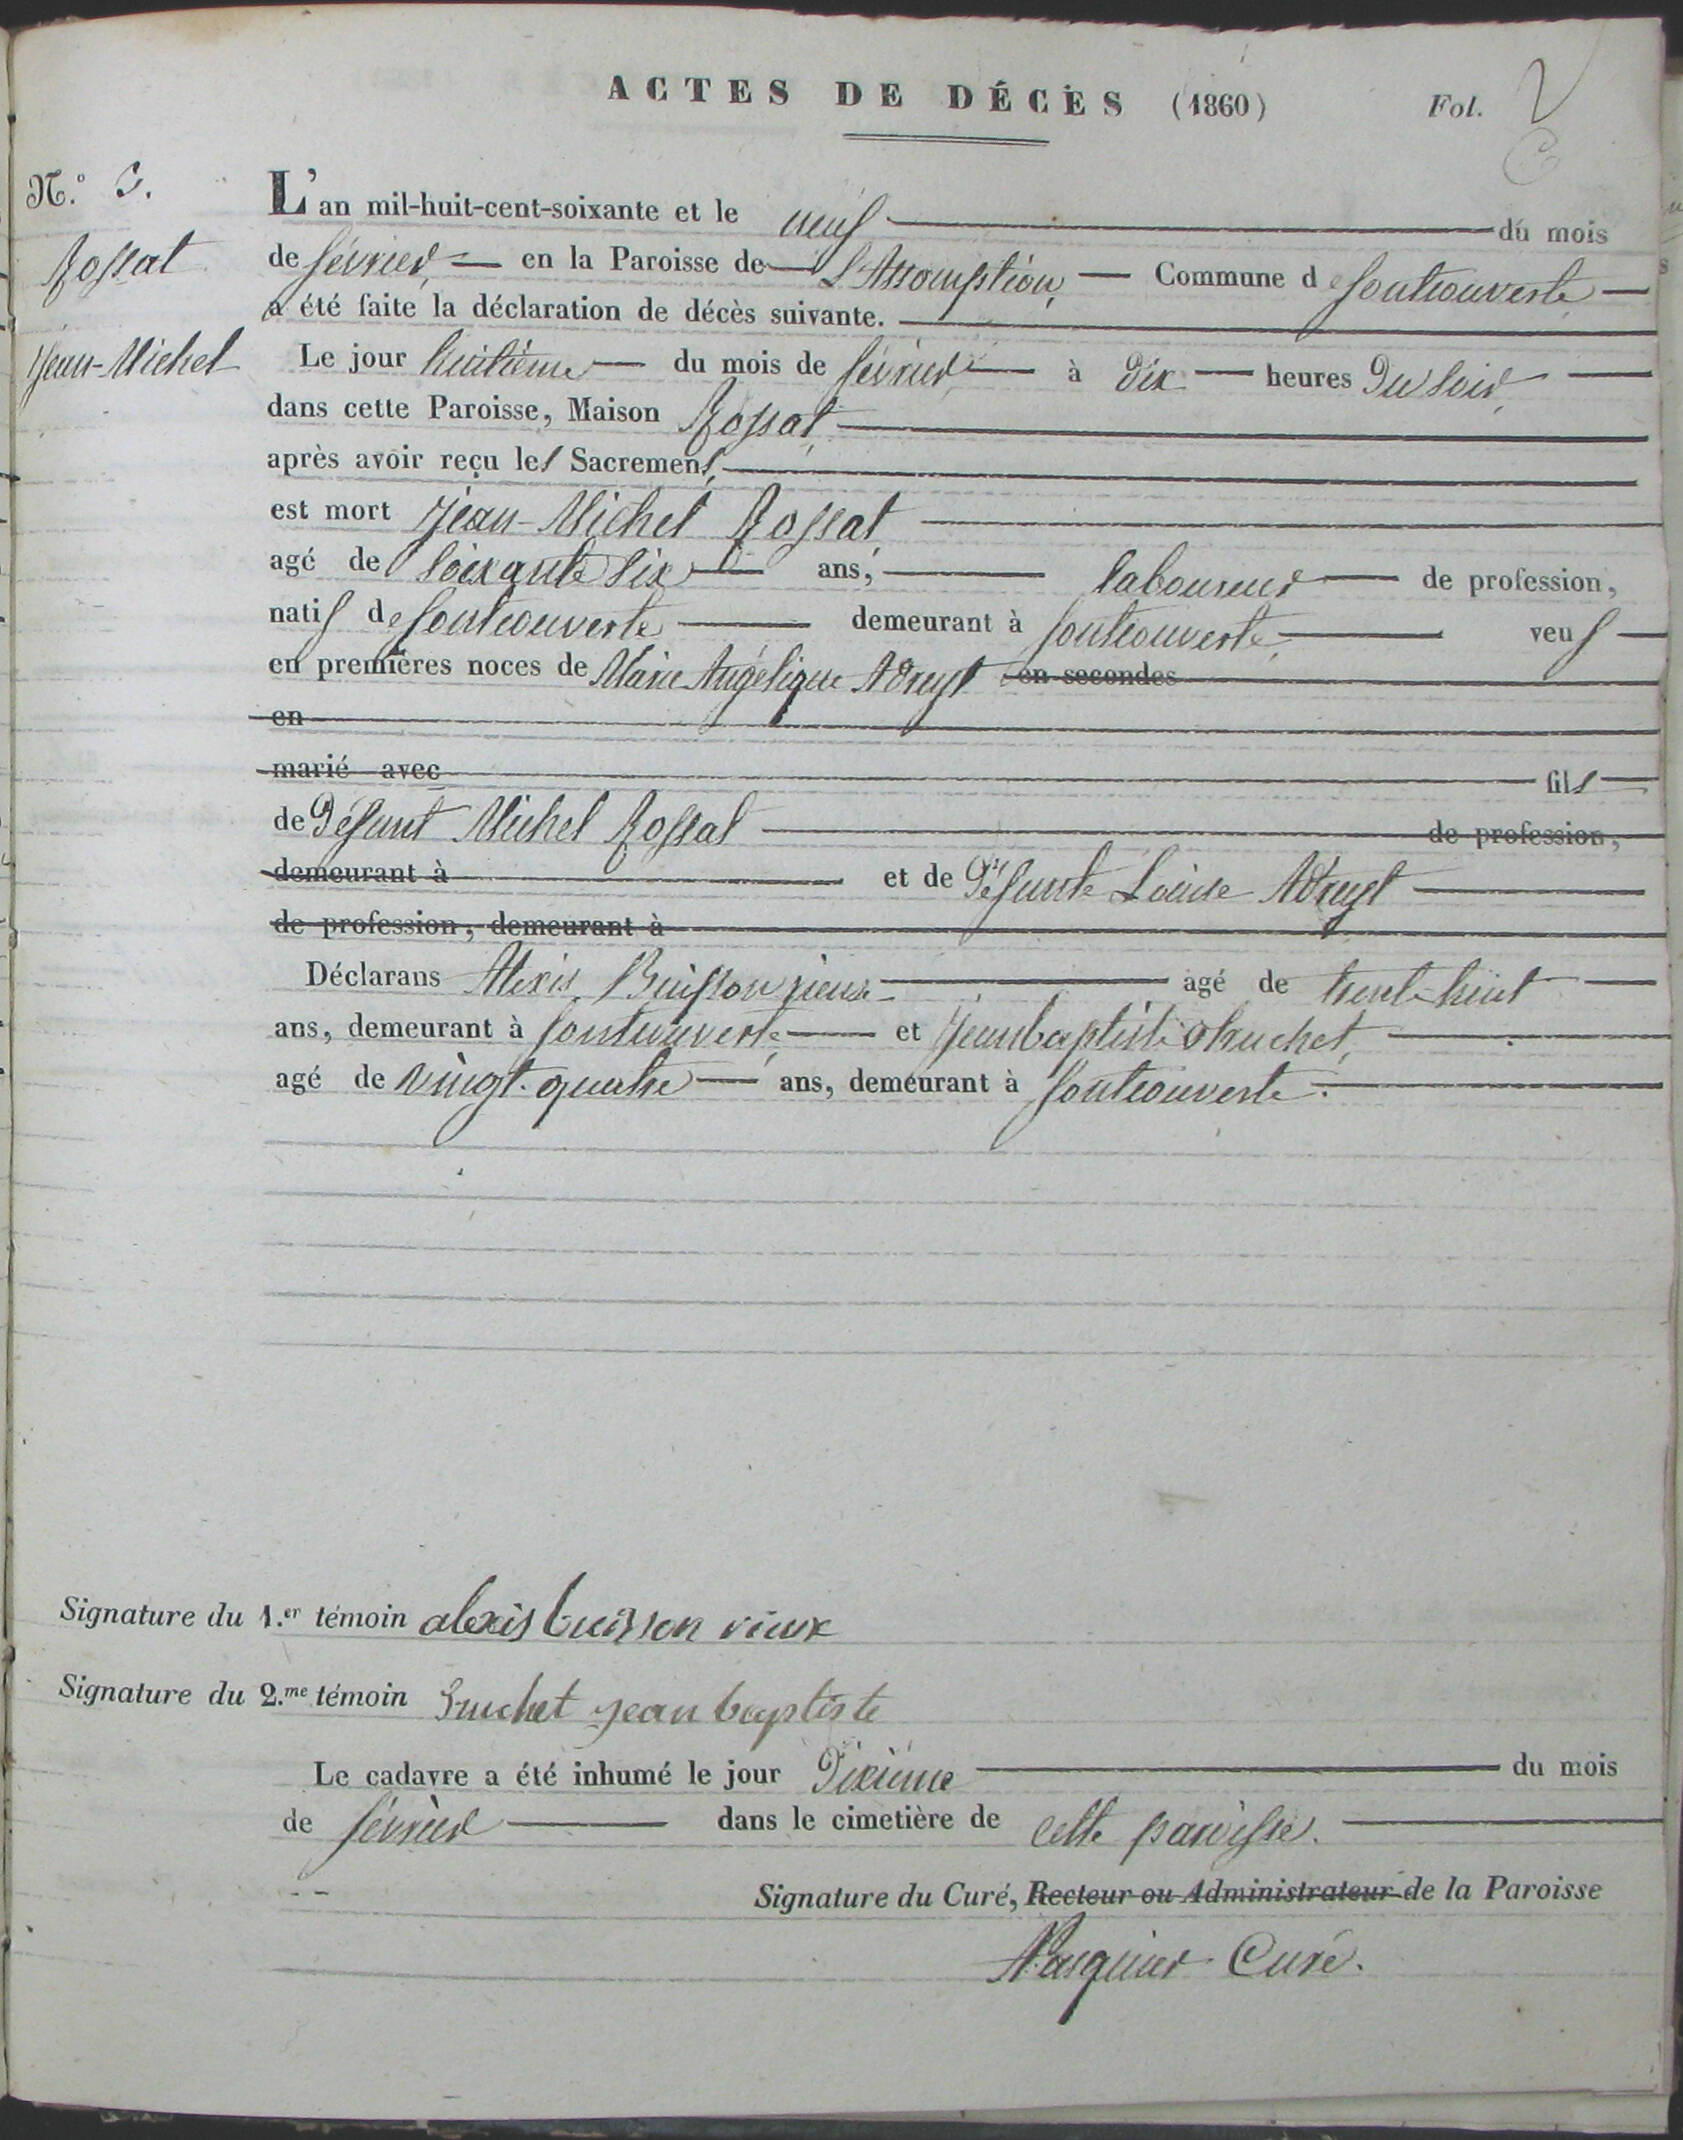 ACTES DE DÉCÈS (1860) Fol. 2
N.° 3.
L'an mil-huit-cent-soixante et le neuf du mois
Rossat
de février en la Paroisse de L'Assomption, Commune de fontcouverte
a été faite la déclaration de décès suivante.
Jean-Michel
Le jour huitième du mois de février à dix heures du soir,
dans cette Paroisse, Maison Rossat,
après avoir reçu les Sacremens,
est mort Jean-Michel Rossat,
agé de soixante six ans, laboureur de profession,
natif de fontcouverte demeurant à fontcouverte, veuf
en premières noces de Marie Angélique Adreyt en secondes
en
marié avec fils
de défunt Michel Rossat de profession,
demeurant à et de défunte Louise Adreyt
de profession, demeurant à
Déclarans Alexis Buisson vieux agé de trente-huit
ans, demeurant à fontcouverte, et Jean baptiste Truchet,
agé de vingt-quatre ans, demeurant à fontcouverte.
Signature du 1.er témoin alexis buisson vieux
Signature du 2.me témoin Truchet jean baptiste
Le cadavre a été inhumé le jour dixième du mois
de février dans le cimetière de cette paroisse.
Signature du Curé, Recteur ou Administrateur de la Paroisse
Pasquier Curé.